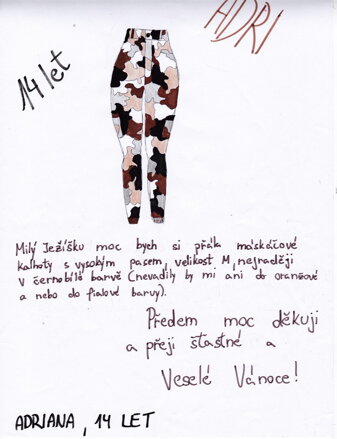 ADRI
14 let
Milý Ježíšku moc bych si přála maskáčové
kalhoty s vysokým pasem, velikost M, nejraději
v černobílé barvě (nevadily by mi ani do oranžové
a nebo do fialové barvy).
Předem moc děkuji
a přeji šťastné a
Veselé Vánoce!
ADRIANA, 14 LET